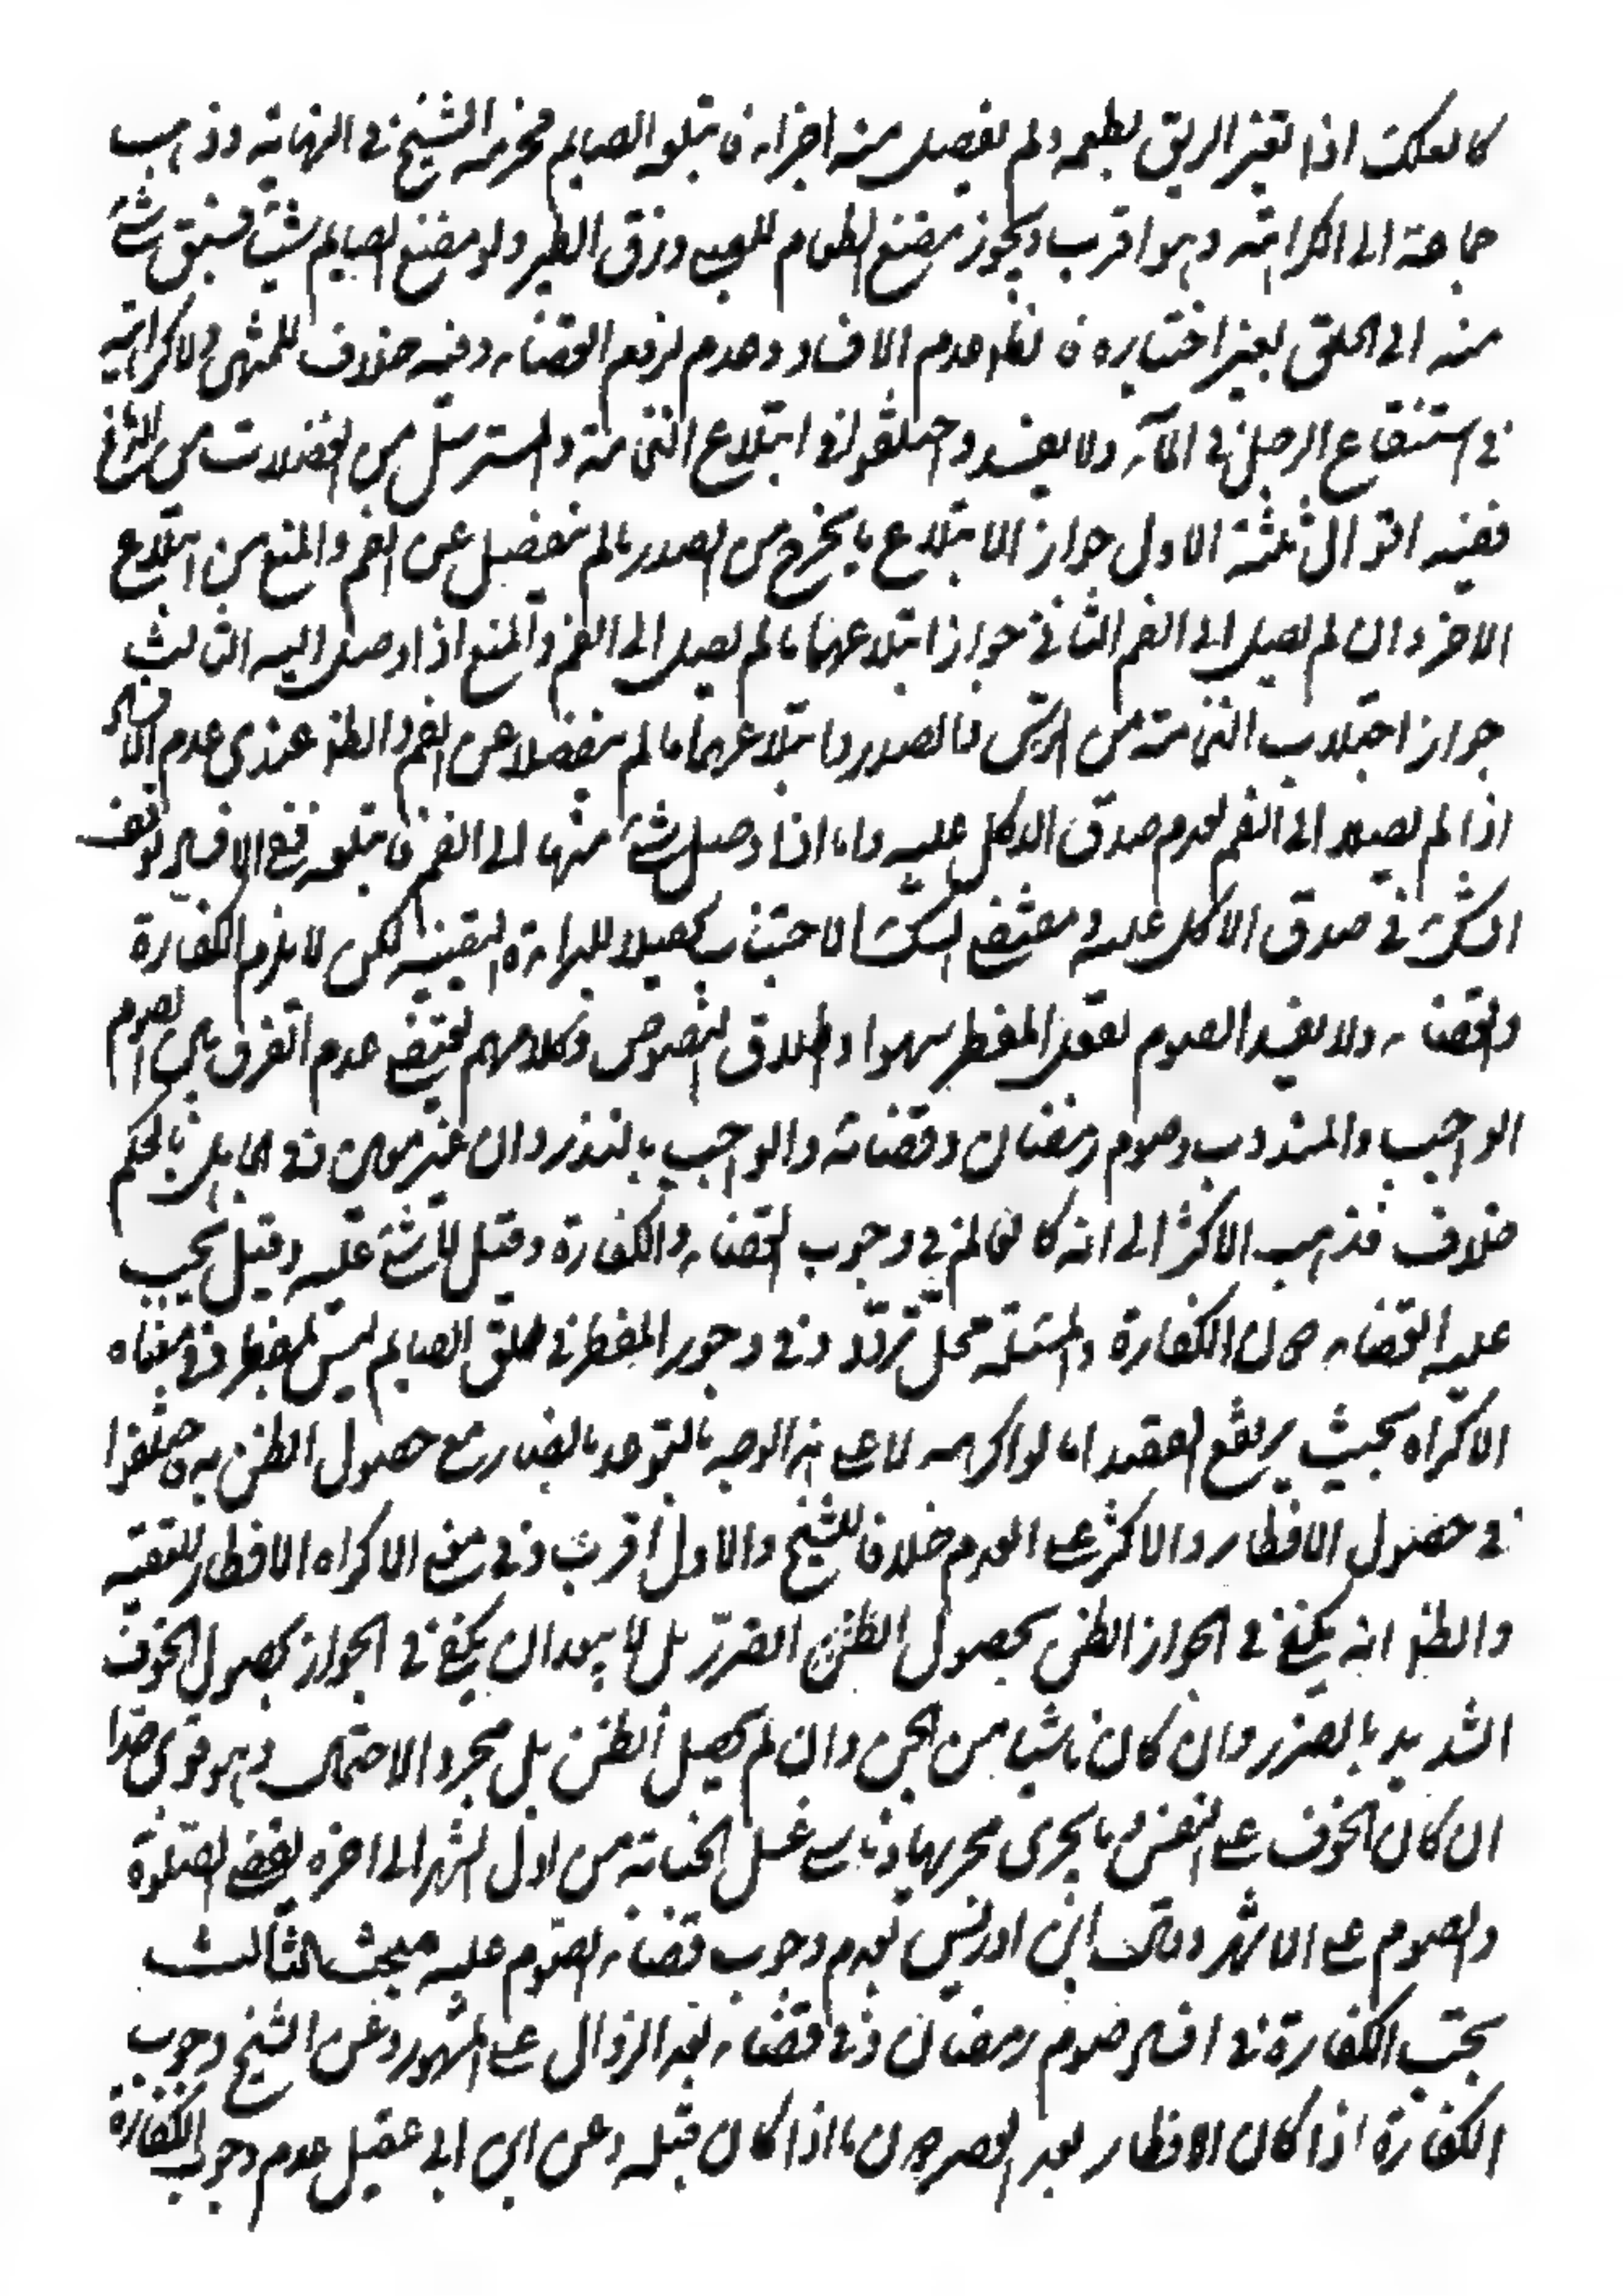 كالعلك اذا تغير الريق بطعمه ولم تفصل منه اجزاء فابتلعه الصايم فحرمه الشيخ في النهاية وذهب
جماعة الى الكراهة وهو اقرب ويجوز مضغ الطعام للصبي وزق الطير ولو مضغ الصايم شيئا فسبق شئ
منه الى الحلق بغير اختياره فالظ عدم الافساد وعدم لزوم القضاء وفيه خلاف للمنتهى ولا كراهية
في استنقاع الرجل في الماء ولا يفسد واختلفوا في ابتلاع النخامة والمسترسل من الفضلات من الدماغ
ففيه اقوال ثلثة الاول جواز الابتلاع ما يخرج من الصدر ما لم ينفصل عن الفم والمنع من ابتلاع
الاخر وان لم يصل الى الفم الثاني جواز ابتلاعهما ما لم يصل الى الفم والمنع اذا وصل اليه الثالث
جواز اجتلاب النخامة من الراس والصدر وابتلاعهما ما لم ينفصلا عن الفم والظ عندي عدم الافساد
اذا لم يصل الى الفم لعدم صدق الاكل عليه واما اذا وصل شئ منها الى الفم فابتلعه ففي الافساد توقف
للشك في صدق الاكل عليه ومقتضى الشك الاجتناب تحصيلا للبراءة اليقينية لكن لا يلزم الكفارة
والقضاء ولا يفسد الصوم بفعل المفطر سهوا واطلاق النصوص وكلامهم يقتضي عدم الفرق بين الصوم
الواجب والمندوب وصوم رمضان وقضائه والواجب بالنذر وان غير معين وفي الجاهل بالحكم
خلاف فذهب الاكثر الى انه كالعالم في وجوب القضاء والكفارة وقيل لا شئ عليه وقيل يجب
عليه القضاء دون الكفارة والمسئلة محل تردد وفي وجور المفطر في حلق الصايم ليس بمفطر وفي معناه
الاكراه بحيث يرتفع القصد اما لو اكره لا على هذا الوجه بالتوعد بالضرر مع حصول الظن به فاختلفوا
في حصول الافطار والاكثر على العدم خلافا للشيخ والاول اقرب وفي معنى الاكراه الافطار للتقية
والظ انه يكفي في الجواز الظن بحصول الظن الضرر بل لا يبعد ان يكفي في الجواز حصول الخوف
الشديد بالضرر وان كان ناشيا من الجبن وان لم يحصل الظن بل مجرد الاحتمال وهو قوي جدا
ان كان الخوف على النفس وما يجرى مجريها وناسي غسل الجنابة من اول الشهر الى اخره يقضي الصلوة
والصوم على الاشهر وقال ابن ادريس بعدم وجوب قضاء الصوم عليه مبحث الثالث
يجب الكفارة في افساد صوم رمضان وفي قضائه بعد الزوال على المشهور وعن الشيخ وجوب
الكفارة اذا كان الافطار بعد العصر دون ما اذا كان قبله وعن ابن ابي عقيل عدم وجوب الكفارة